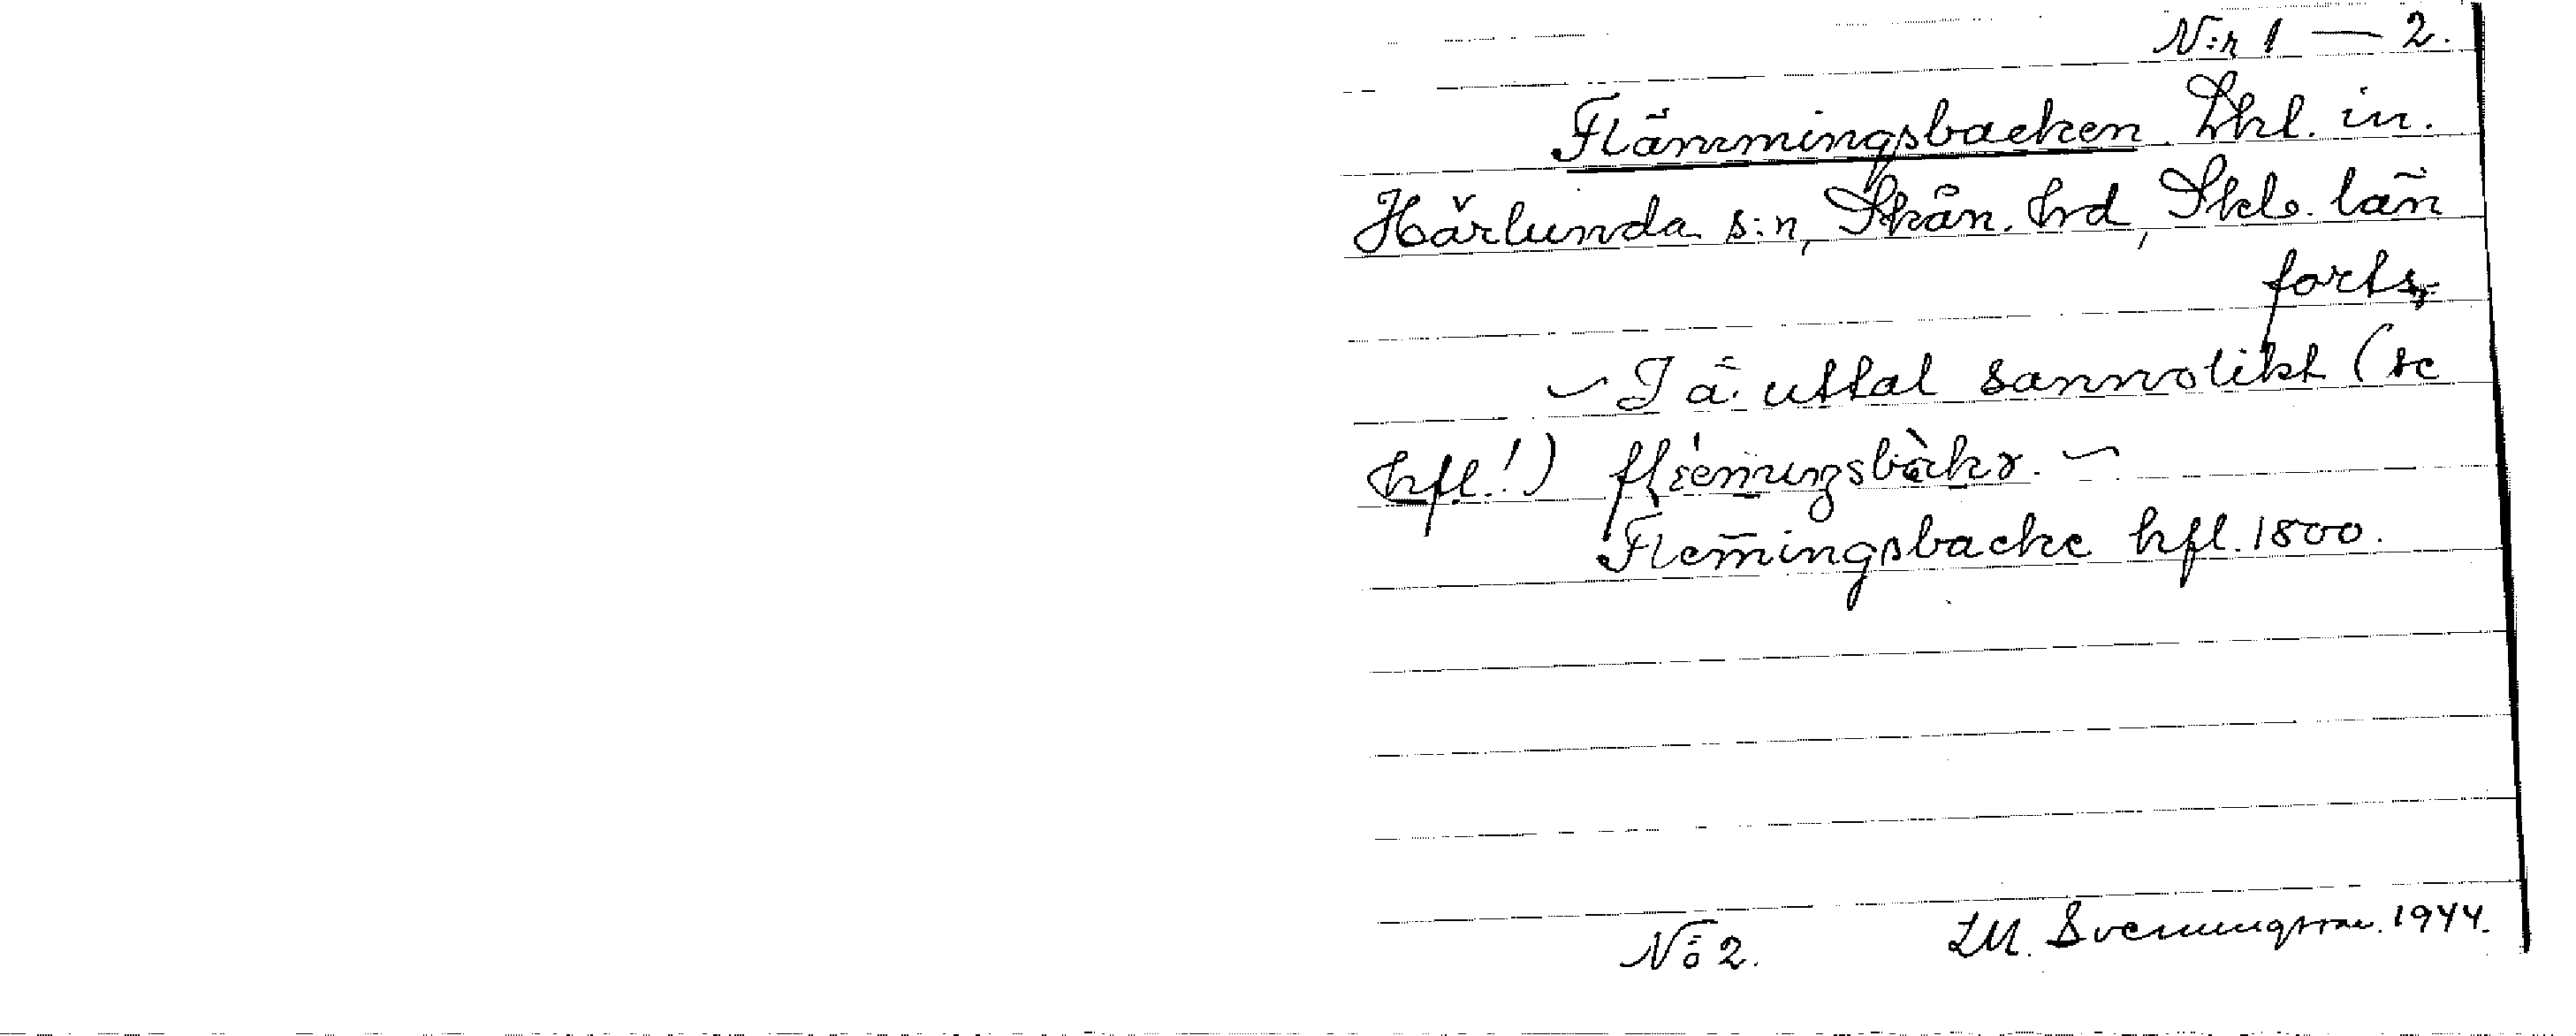 N:r 1 — 2.
Flämmingsbacken. Lhl. in.
Härlunda s:n, Skån. hrd, Skbg. län
forts.
– I ä. uttal sannolikt (se
hfl.!)
Flem̄ingsbacke hfl. 1800.
No 2.
LM. Svenungsson. 1944.